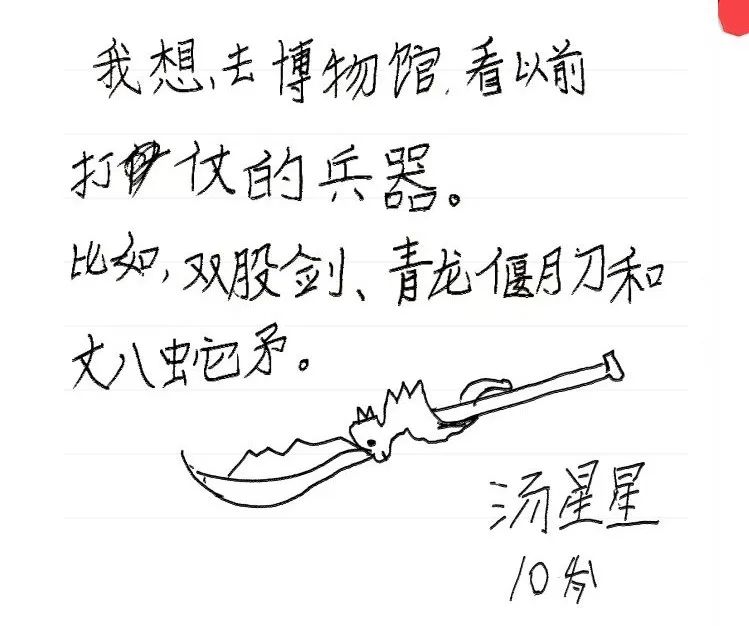 我想去博物馆,看以前
打仗的兵器。
比如,双股剑、青龙偃月刀和
丈八蛇矛。
汤星星
10岁